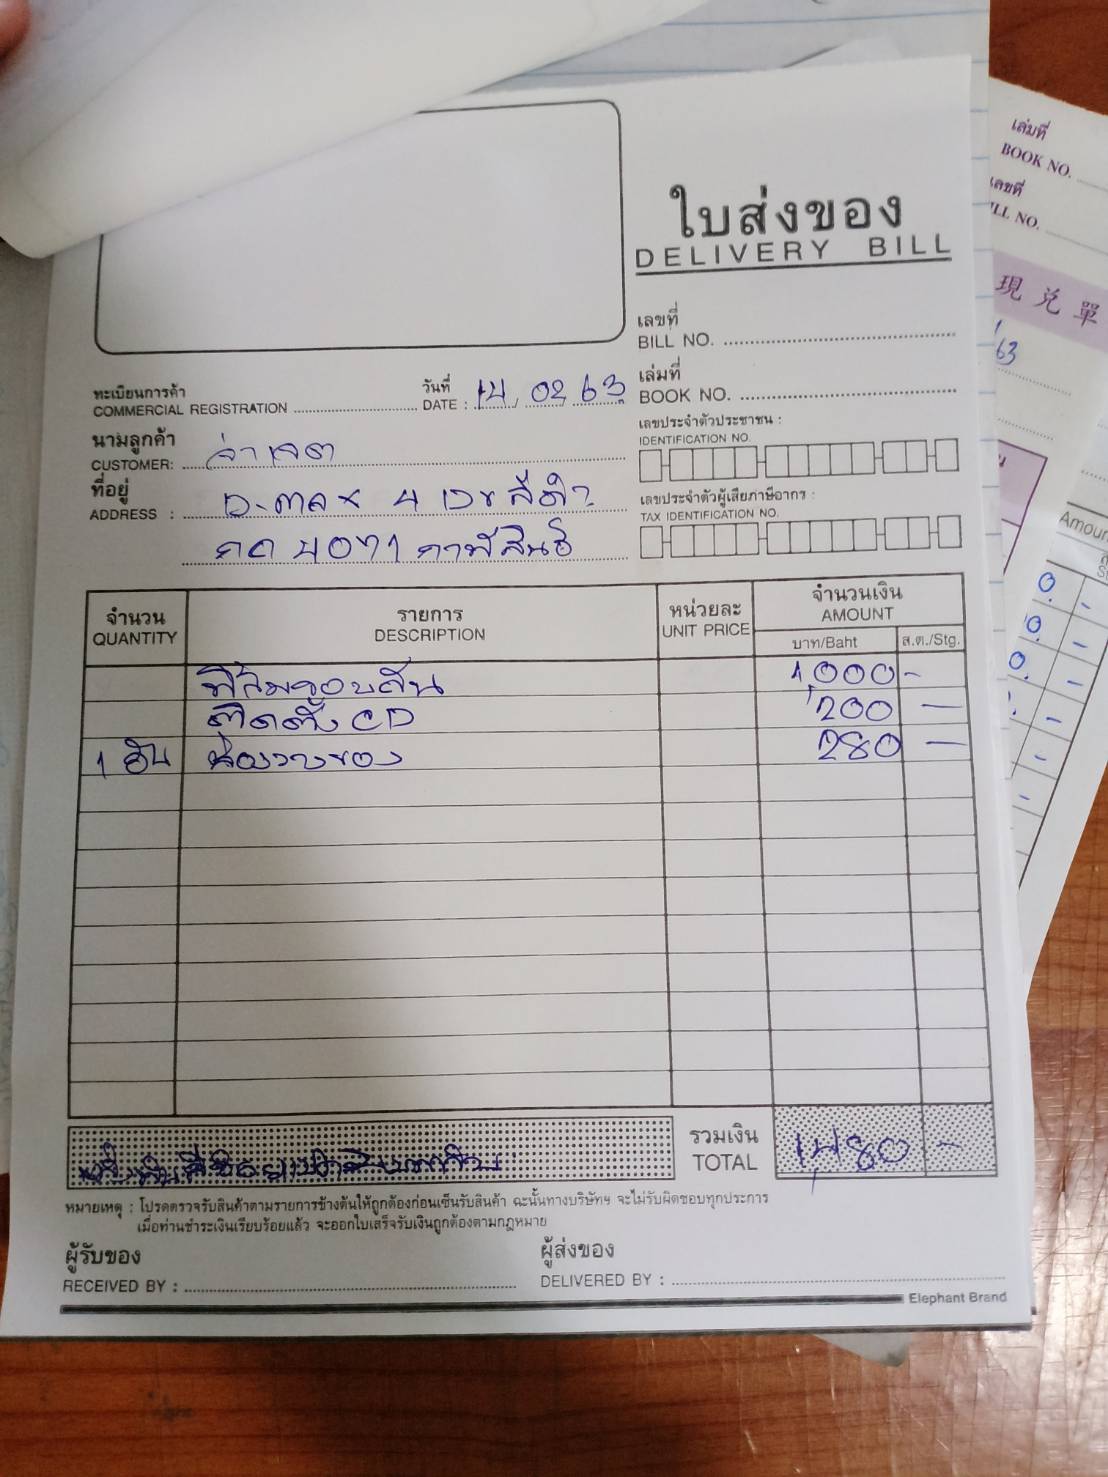 ใบส่งของ
DELIVERY BILL
เลขที่
BILL NO.
เล่มที่
BOOK NO.
ทะเบียนการค้า
COMMERCIAL REGISTRATION
วันที่
DATE : 14 / 02 / 63
นามลูกค้า
CUSTOMER: จ่าเจต
ที่อยู่
ADDRESS : D-max 4 ประตู สีดำ
กต 4071 กาฬสินธุ์
เลขประจำตัวประชาชน :
IDENTIFICATION NO.
เลขประจำตัวผู้เสียภาษีอากร :
TAX IDENTIFICATION NO.
จำนวน รายการ หน่วยละ จำนวนเงิน
QUANTITY DESCRIPTION UNIT PRICE AMOUNT
บาท/Baht ส.ต./Stg.
ฟิล์มรอบคัน 1,000 -
ติดตั้ง CD 200 -
1 อัน ช่องวางของ 280 -
รวมเงิน
TOTAL 1,480 -
หมายเหตุ : โปรดตรวจรับสินค้าตามรายการข้างต้นให้ถูกต้องก่อนเซ็นรับสินค้า ฉะนั้นทางบริษัทฯ จะไม่รับผิดชอบทุกประการ
เมื่อท่านชำระเงินเรียบร้อยแล้ว จะออกใบเสร็จรับเงินถูกต้องตามกฎหมาย
ผู้รับของ
RECEIVED BY :
ผู้ส่งของ
DELIVERED BY :
Elephant Brand
เล่มที่
BOOK NO.
เลขที่
ILL NO.
現兌單
63
Amoun